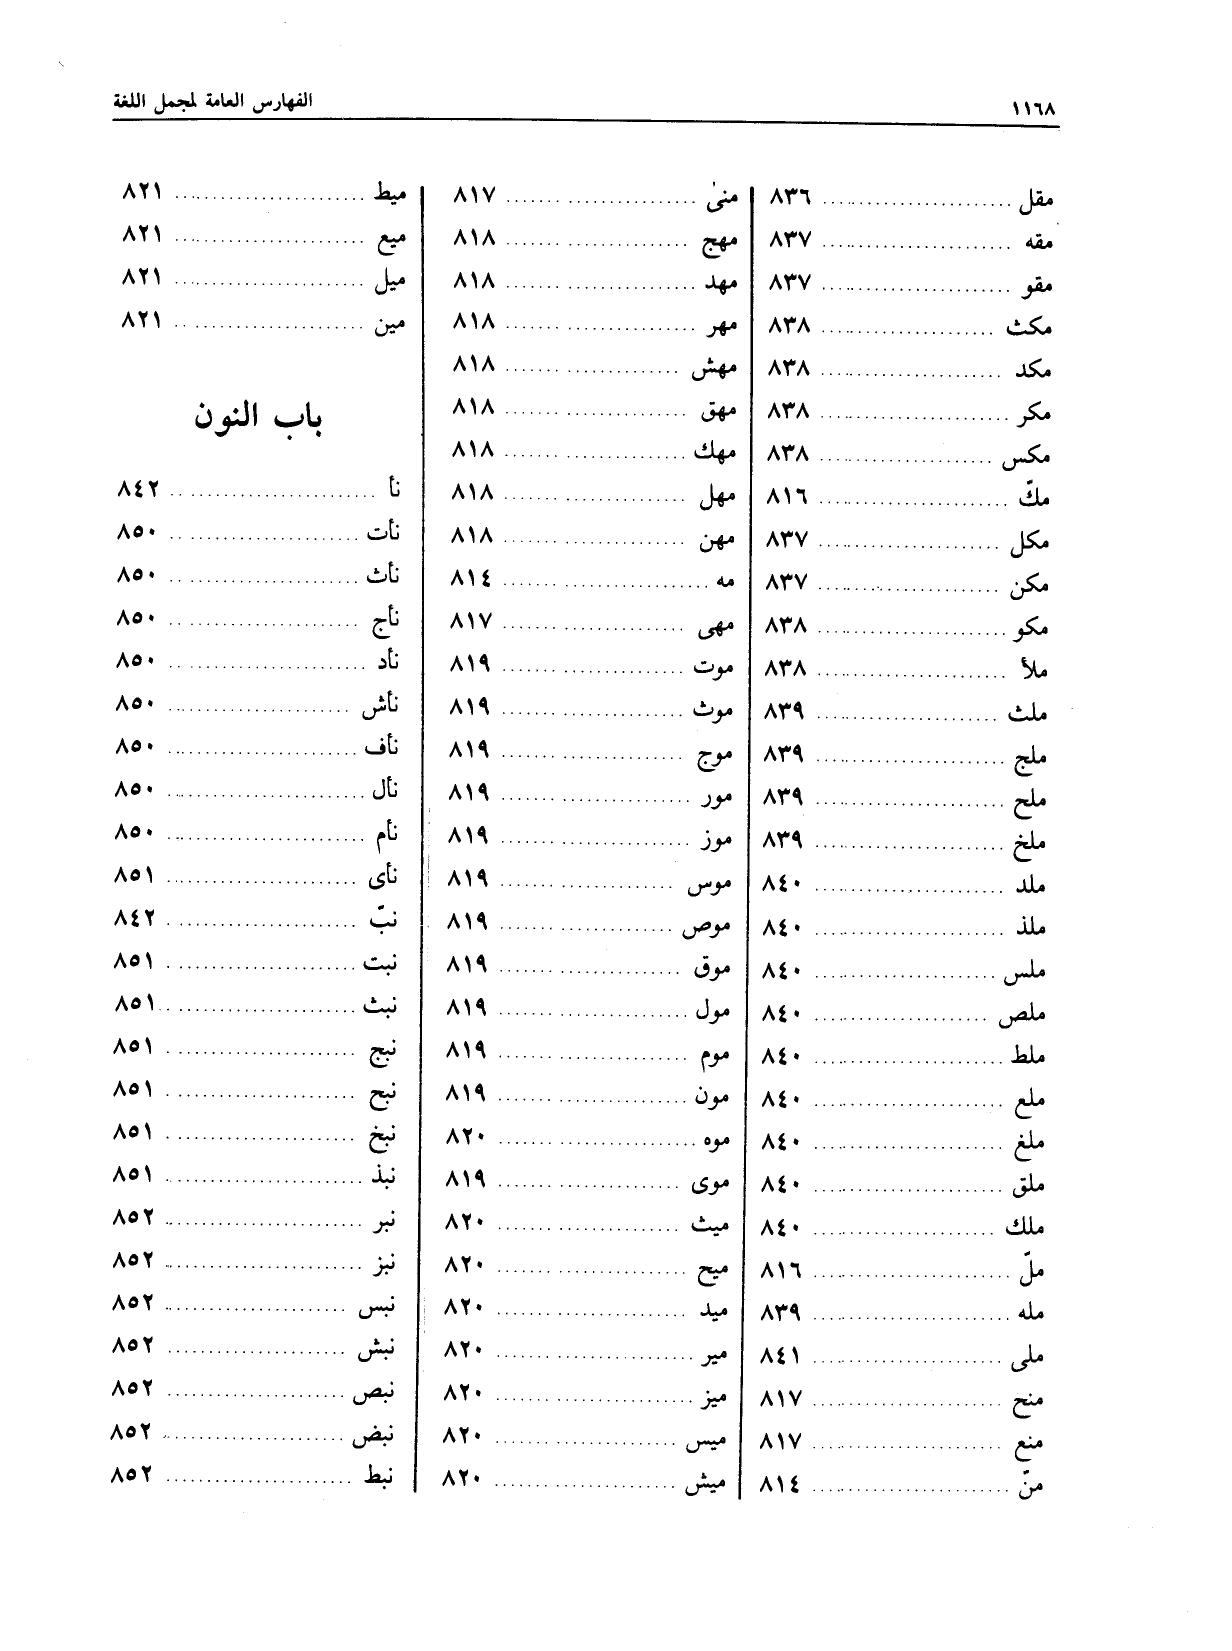 ١١٦٨
الفهارس العامة لمجمل اللغة
مقل ٨٣٦
مقه ٨٣٧
مقو ٨٣٧
مكث ٨٣٨
مكد ٨٣٨
مكر ٨٣٨
مكس ٨٣٨
مكّ ٨١٦
مكل ٨٣٧
مكن ٨٣٧
مكو ٨٣٨
ملأ ٨٣٨
ملث ٨٣٩
ملج ٨٣٩
ملح ٨٣٩
ملخ ٨٣٩
ملد ٨٤٠
ملذ ٨٤٠
ملس ٨٤٠
ملص ٨٤٠
ملط ٨٤٠
ملع ٨٤٠
ملغ ٨٤٠
ملق ٨٤٠
ملك ٨٤٠
ملّ ٨١٦
مله ٨٣٩
ملى ٨٤١
منح ٨١٧
منع ٨١٧
منّ ٨١٤
منىٰ ٨١٧
مهج ٨١٨
مهد ٨١٨
مهر ٨١٨
مهش ٨١٨
مهق ٨١٨
مهك ٨١٨
مهل ٨١٨
مهن ٨١٨
مه ٨١٤
مهى ٨١٧
موت ٨١٩
موث ٨١٩
موج ٨١٩
مور ٨١٩
موز ٨١٩
موس ٨١٩
موص ٨١٩
موق ٨١٩
مول ٨١٩
موم ٨١٩
مون ٨١٩
موه ٨٢٠
موى ٨١٩
ميث ٨٢٠
ميح ٨٢٠
ميد ٨٢٠
مير ٨٢٠
ميز ٨٢٠
ميس ٨٢٠
ميش ٨٢٠
ميط ٨٢١
ميع ٨٢١
ميل ٨٢١
مين ٨٢١
باب النون
نأ ٨٤٢
نأت ٨٥٠
نأث ٨٥٠
نأج ٨٥٠
نأد ٨٥٠
نأش ٨٥٠
نأف ٨٥٠
نأل ٨٥٠
نأم ٨٥٠
نأى ٨٥١
نبّ ٨٤٢
نبت ٨٥١
نبث ٨٥١
نبج ٨٥١
نبح ٨٥١
نبخ ٨٥١
نبذ ٨٥١
نبر ٨٥٢
نبز ٨٥٢
نبس ٨٥٢
نبش ٨٥٢
نبص ٨٥٢
نبض ٨٥٢
نبط ٨٥٢